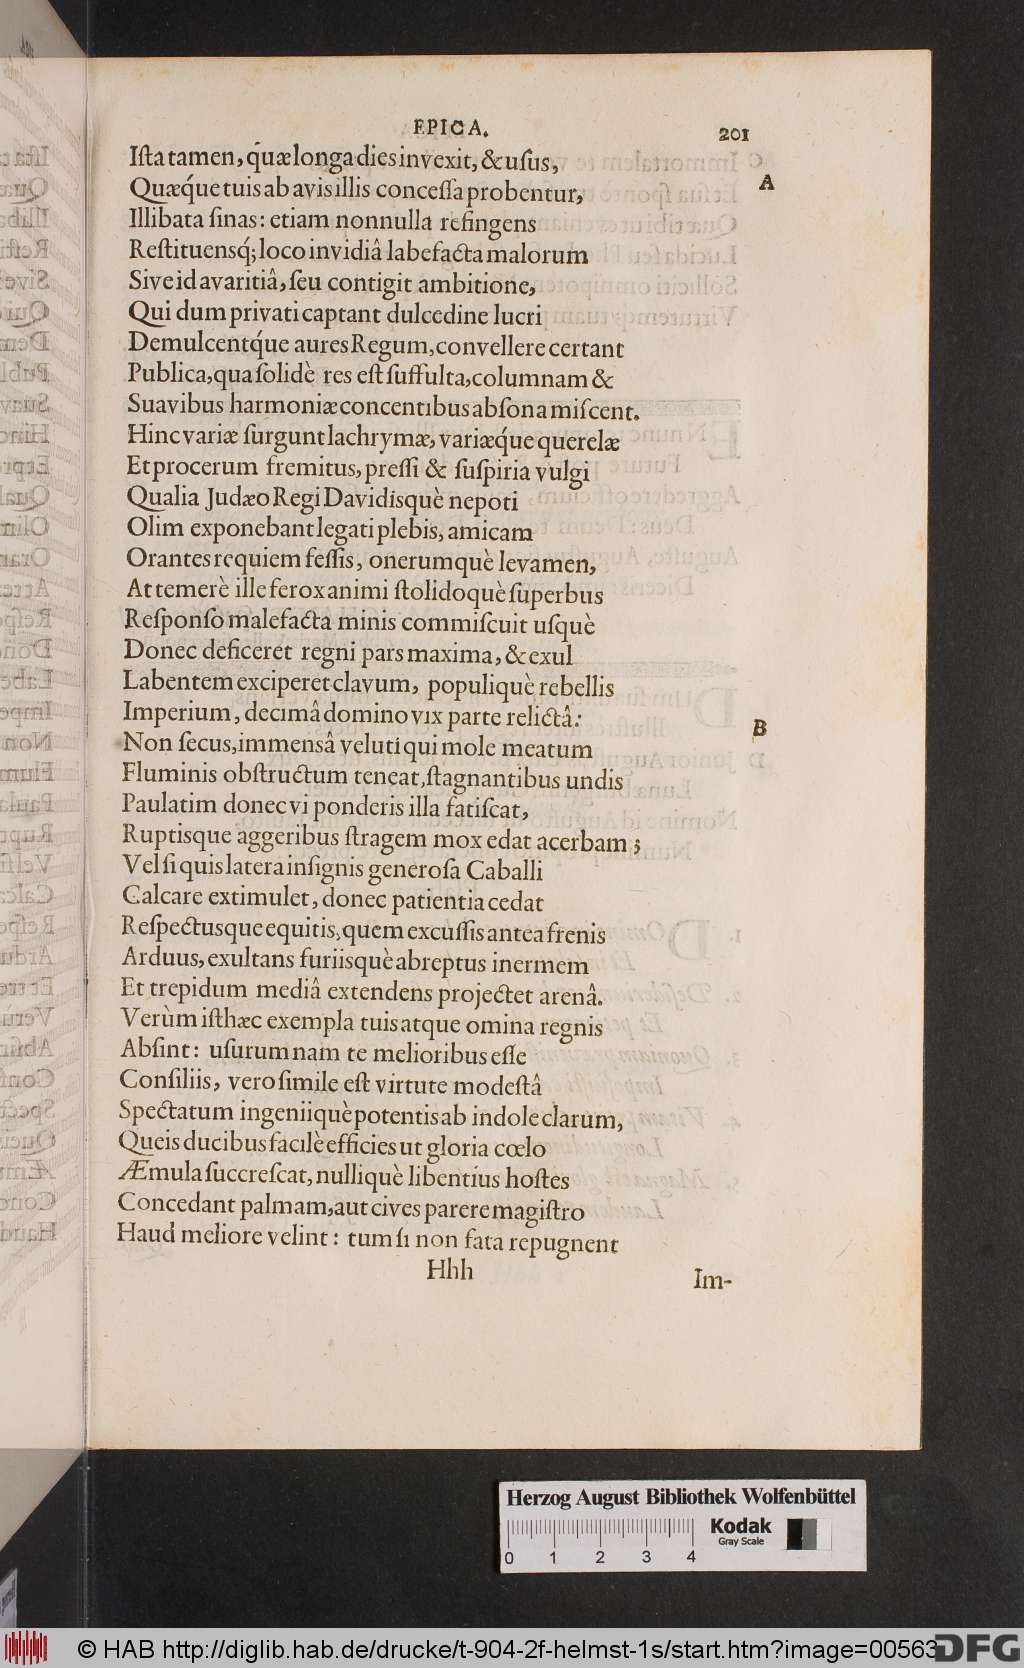 EPICA.
201
Iſta tamen, quæ longa dies invexit, & uſus,
A
Quæq́ue tuis ab avis illis conceſſa probentur,
Illibata ſinas: etiam nonnulla refingens
Reſtituensq́; loco invidiâ labefacta malorum
Sive id avaritiâ, ſeu contigit ambitione,
Qui dum privati captant dulcedine lucri
Demulcentq́ue aures Regum, convellere certant
Publica, qua ſolidè res eſt ſuffulta, columnam &
Suavibus harmoniæ concentibus abſona miſcent.
Hinc variæ ſurgunt lachrymæ, variæq́ue querelæ
Et procerum fremitus, preſſi & ſuſpiria vulgi
Qualia Judæo Regi Davidisquè nepoti
Olim exponebant legati plebis, amicam
Orantes requiem feſſis, onerumquè levamen,
At temerè ille ferox animi ſtolidoquè ſuperbus
Reſponſo malefacta minis commiſcuit uſquè
Donec deficeret regni pars maxima, & exul
Labentem exciperet clavum, populiquè rebellis
Imperium, decimâ domino vix parte relictâ:
B
Non ſecus, immensâ veluti qui mole meatum
Fluminis obſtructum teneat, ſtagnantibus undis
Paulatim donec vi ponderis illa fatiſcat,
Ruptisque aggeribus ſtragem mox edat acerbam;
Vel ſi quis latera inſignis generoſa Caballi
Calcare extimulet, donec patientia cedat
Reſpectusque equitis, quem excuſſis antea frenis
Arduus, exultans furiisquè abreptus inermem
Et trepidum mediâ extendens projectet arenâ.
Verùm iſthæc exempla tuis atque omina regnis
Abſint: uſurum nam te melioribus eſſe
Conſiliis, vero ſimile eſt virtute modeſtâ
Spectatum ingeniiquè potentis ab indole clarum,
Queis ducibus facilè efficies ut gloria cœlo
Æmula ſuccreſcat, nulliquè libentius hoſtes
Concedant palmam, aut cives parere magiſtro
Haud meliore velint: tum ſi non fata repugnent
Hhh
Im-
Herzog August Bibliothek Wolfenbüttel
Kodak
Gray Scale
0 1 2 3 4
© HAB http://diglib.hab.de/drucke/t-904-2f-helmst-1s/start.htm?image=00563
DFG